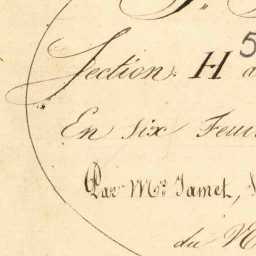 5
Section H
En six Feui
Par Mr. Jamet,
du